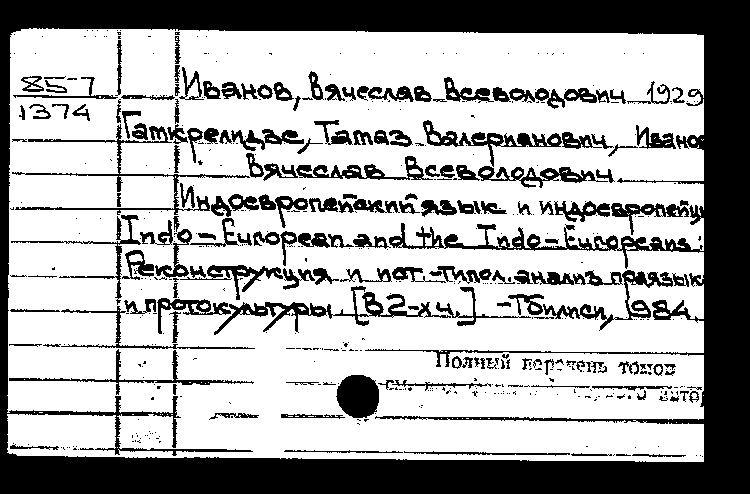 857
1374
Иванов, Вячеслав Всеволодович 1929
Гамкрелидзе, Тамаз Валерианович, Иванов
Вячеслав Всеволодович.
Индоевропейский язык и индоевропейцы
Indo-European and the Indo-Europeans:
Реконструкция и ист.-типол. анализ праязык
и протокультуры. [В 2-х ч.]. -Тбилиси, 1984.
Полный перечень томов
см. под первого автор